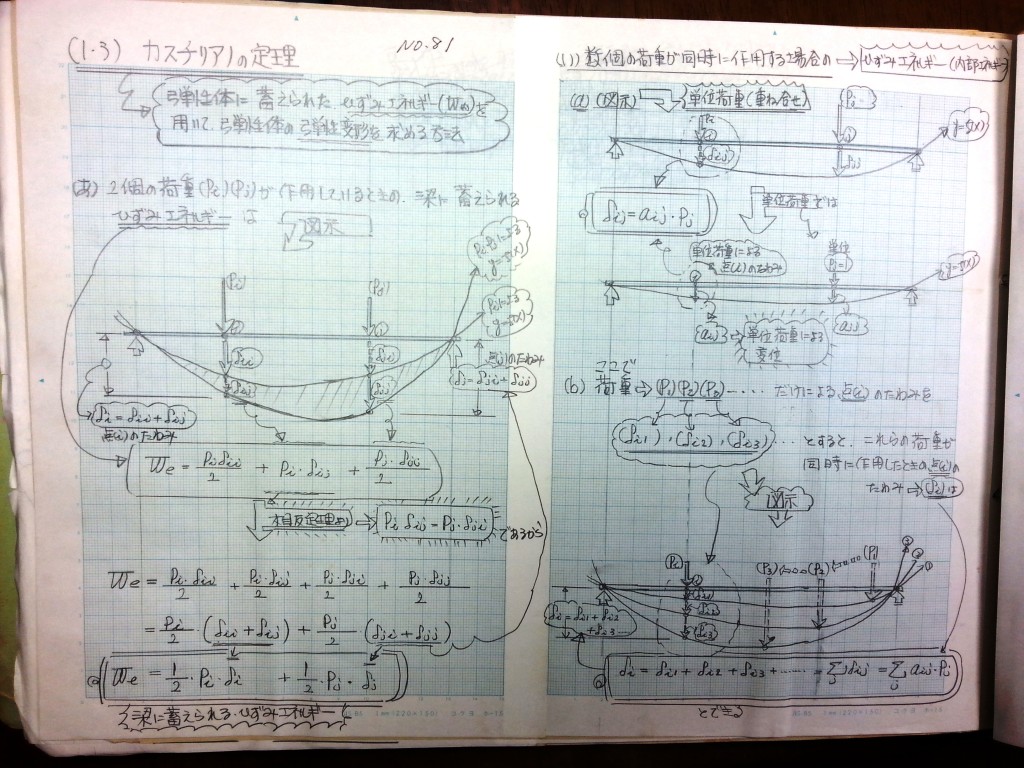 (1·3) カスチリアノの定理
NO.81
弾性体に蓄えられたひずみエネルギー(We)を
用いて、弾性体の弾性変形を求める方法
(あ) 2個の荷重(Pi)(Pj)が作用しているときの、梁に蓄えられる
ひずみエネルギーは
図示
Piによる
y=f(x)
(Pi)
(Pj)
δii
δij
δji
δjj
δi=δii+δij
点(i)のたわみ
点(j)のたわみ
δj=δji+δjj
We = Pi·δii/2 + Pi·δij + Pj·δjj/2
相反定理より ⇒ Pi·δij = Pj·δji であるから
We = Pi·δii/2 + Pi·δij/2 + Pj·δji/2 + Pj·δjj/2
= Pi/2·(δii+δij) + Pj/2·(δji+δjj)
We = 1/2·Pi·δi + 1/2·Pj·δj
梁に蓄えられる·ひずみエネルギー
(1) 数個の荷重が同時に作用する場合の ⇒ ひずみエネルギー(内部エネルギー)
(a) (図示)
単位荷重(重ね合せ)
y=f(x)
δij
δij = aij·Pj
単位荷重では
単位荷重による
点(i)のたわみ
単位
Pj=1
y=f(x)
aij ⇒ 単位荷重による
変位
ココで
(b) 荷重⇒(P1)(P2)(P3)····· だけによる、点(i)のたわみを
(δi1), (δi2), (δi3)·· とすると、これらの荷重が
同時に作用したときの点(i)の
たわみ⇒(δi)は
図示
(P3)
(P2)
(P1)
δi=δi1+δi2
+δi3
δi = δi1 + δi2 + δi3 + ······ = Σj δij = Σj aij·Pj
とできる